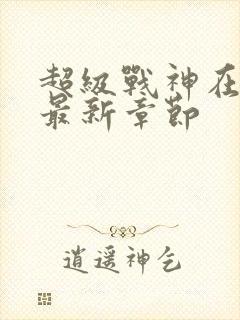 超級戰神在
最新章節
逍遥神乞